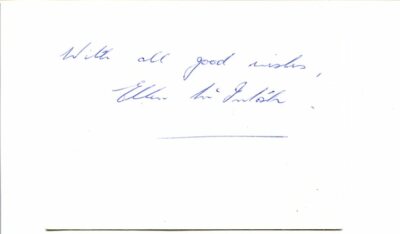 With all good wishes,
Ellen McIntosh.